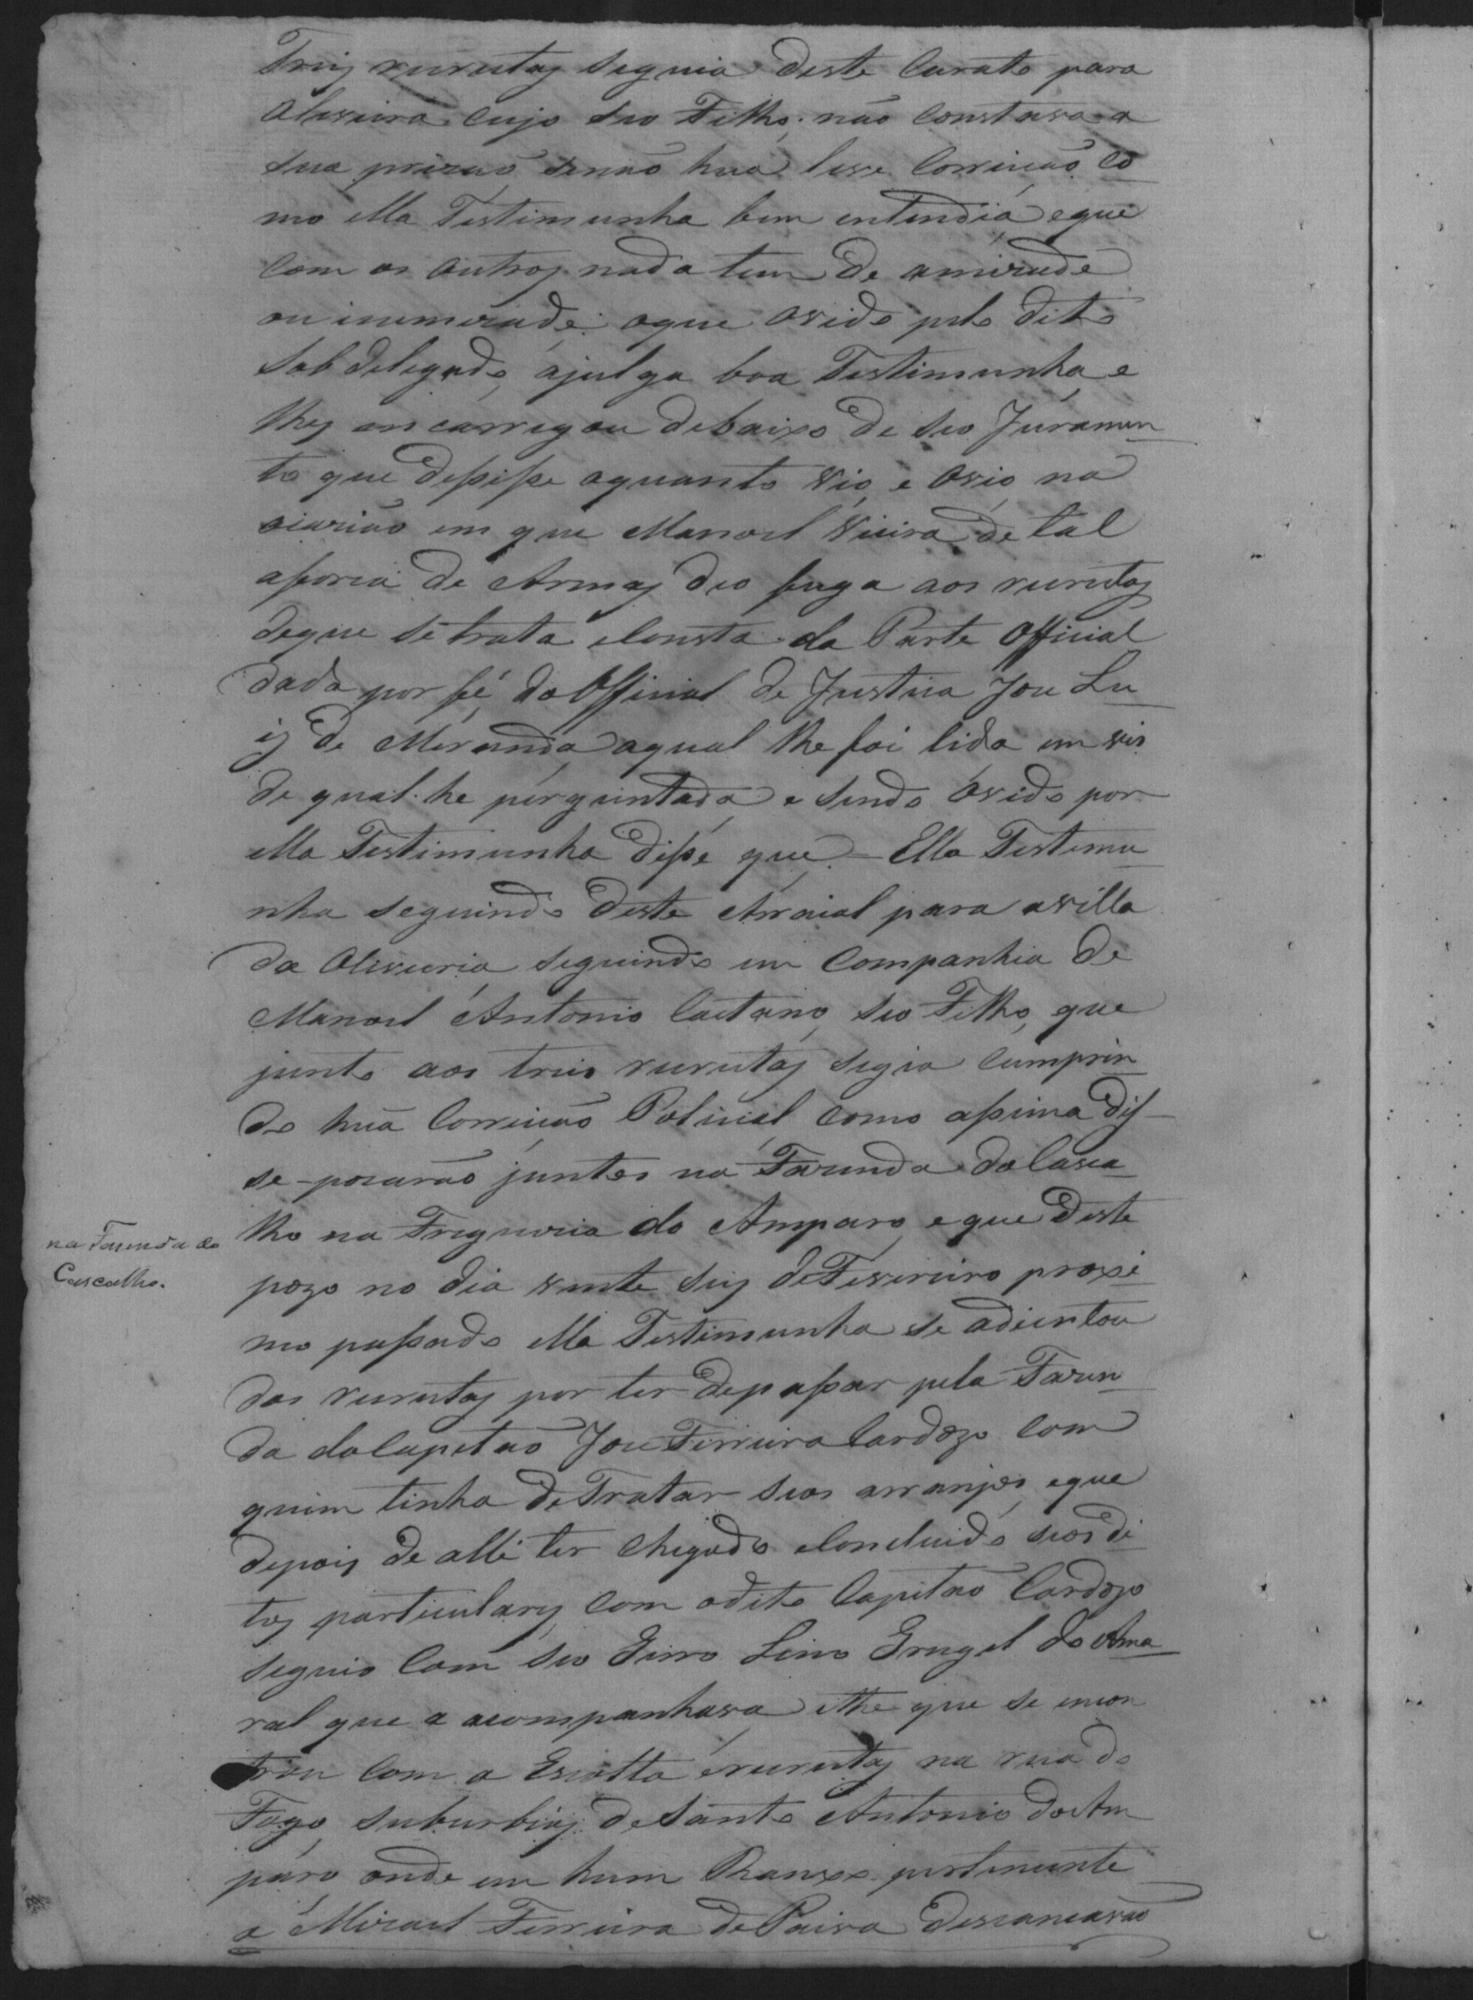 Tres recrutas seguia deste Curato para
Oliveira cujo seo Filho não constava a
sua prizão senão huã leve Correição Co
mo ella Testimunha bem entendia e que
Com os outros nada tem de amizade
ou inemizade: o que ovido pelo dito
Sobdelegado a julga boa Testimunha e
lhes encarregou debaixo de seo Juramen
to que depiſse o quanto vio e ovio na
ociazião em que Manoel Vieira de tal
aforsa de Armas deo fuga aos recrutas
de que se trata e Consta da Parte Official
dada por fé do Official de Justiça Joze Lu
is de Meranda a qual lhe foi lida em vez
de qual he perguntada e sendo ovido por
ella Testimunha diſse que = Ella Testemu
nha seguindo deste Arraial para a villa
da Oliveira seguindo em Companhia de
Manoel Antonio Caetano seo Filho, que
junto aos tres recrutas segia Cumprin
do huã Correição Policial Como aſsima dis
se pozarão juntos na Fazenda do Casca
lho na Freguezia do Amparo e que deste
pozo no dia vinte seis de Fevereiro proxi
mo paſsado ella Testimunha se adientou
dos recrutas por ter de paſsar pela Fazen
da do Capitão Joze Ferreira Cardozo Com
quem tinha de Tratar seos arranjos, e que
depois de alli ter chegado e Concluido seos di
tos particulares Com o dito Capitão Cardozo
seguio Com seo Genro Lino Grugel do Ama
ral que a acompanhava the que se encon
trou Com a Escolta e recrutas na rua do
Fogo suburbios de Santo Antonio do Am
paro onde em hum Ranxo pertencente
a Mizael Ferreira de Paiva descancavão
na Fazenda do
Cascalho.